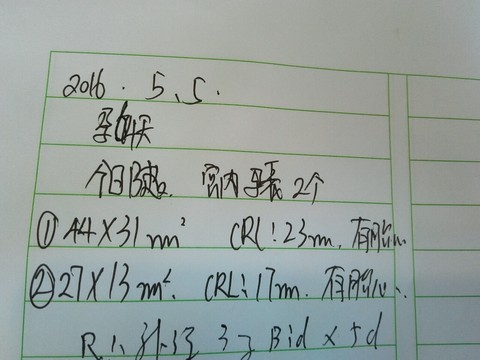 2016.5.5.
孕 天
今日B超: 宫内孕囊2个
①44X31mm² CRL:23mm.有胎心.
②27X13mm². CRL:17mm.有胎心.
R: 3 Bid x 5d